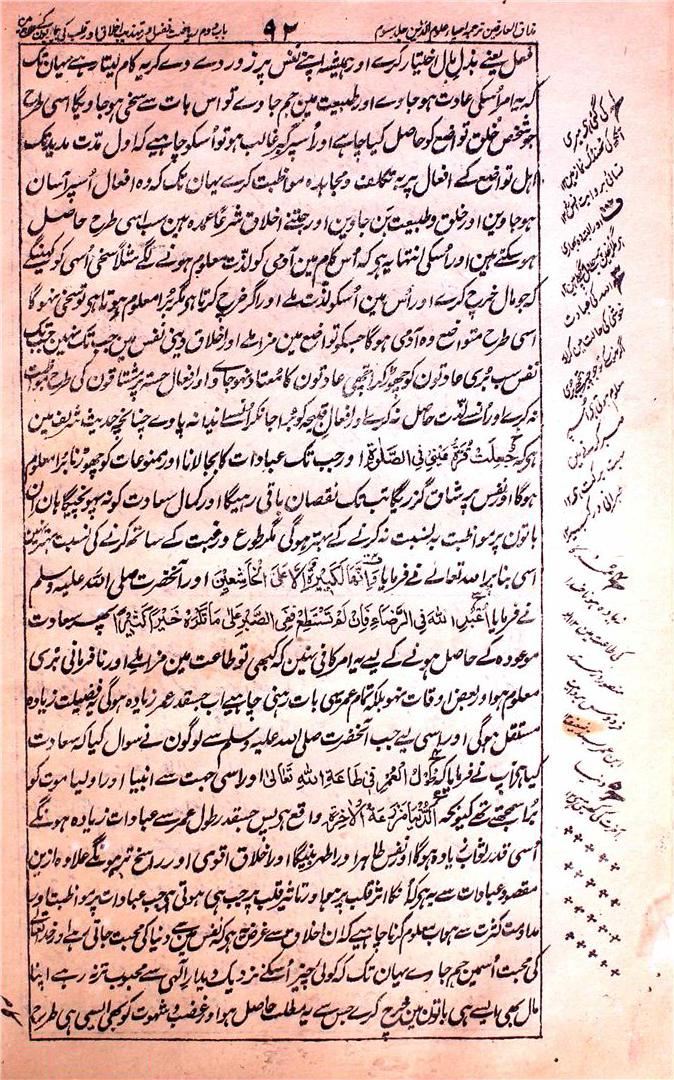 مذاق العارفین ترجمہ احیاء علوم الدین جلد سوم
۹۲
باب دوم ریاضت نفس اور تہذیب اخلاق اور قلب کی بیماریوں کے علاج میں
فعل یعنے بذل مال اختیار کرے اور ہمیشہ اپنے نفس پر زور دے دے کر یہ کام لیتا رہے یہان تک
کہ یہ امر اُسکی عادت ہو جاوے اور طبیعت مین جم جاوے تو اس بات سے سخی ہو جاویگا اسی طرح
جو شخص خلق تواضع کو حاصل کیا چاہے اور اُسپر کبر غالب ہو تو اُسکو چاہیے کہ اول مدت مدید تک
اہل تواضع کے افعال پر بہ تکلف و مجاہدہ مواظبت کرے یہان تک کہ وہ افعال اُسپر آسان
ہو جاوین اور خلق و طبیعت بن جاوین اور جتنے اخلاق شرعاً عمدہ ہین سب اسی طرح حاصل
ہو سکتے ہین اور اُسکی انتہا یہ ہے کہ اُس کام مین آدمی کو لذت معلوم ہونے لگے مثلاً سخی اُسی کو کہینگے
کہ جو مال خرچ کرے اور اُس مین اُسکو لذت ملے اور اگر خرچ کرتا ہو مگر بُرا معلوم ہوتا ہو تو سخی نہوگا
اسی طرح متواضع وہ آدمی ہوگا جسکو تواضع مین مزا ملے اور اخلاق دینی نفس مین جب تک نہین جمتے جبتک
نفس سب بُری عادتون کو چھوڑ کر اچھی عادتون کا معتاد نہو جاوے اور افعال حسنہ پر مشتاقون کی طرح مواظبت
نہ کرے اور اُنسے لذت حاصل نہ کرے اور افعال قبیحہ کو بُرا جانکر اُنسے ایذا نہ پاوے چنانچہ حدیث شریف مین
ہے کہ جُعِلَتْ قُرَّةُ عَيْنِي فِي الصَّلٰوةِ اور جب تک عبادات کا بجا لانا اور ممنوعات کو چھوڑنا بُرا معلوم
ہوگا اور نفس پر شاق گزریگا تب تک نقصان باقی رہیگا اور کمال سعادت کو نہ پہونچیگا ہان ان
باتون پر مواظبت بہ نسبت نہ کرنے کے بہتر ہوگی مگر طوع و رغبت کے ساتھ کرنے کی نسبت بہتر نہین
اسی بنا پر اللہ تعالے نے فرمایا وَاِنَّهَا لَكَبِيْرَةٌ اِلَّا عَلَى الْخَاشِعِيْنَ اور آنحضرت صلی اللہ علیہ وسلم
نے فرمایا اُعْبُدِ اللّٰهَ فِي الرِّضَاءِ فَاِنْ لَمْ تَسْتَطِعْ فَفِي الصَّبْرِ عَلٰى مَا تَكْرَهُ خَيْرٌ كَثِيْرٌ پھر سعادت
موعودہ کے حاصل ہونے کے لیے یہ امر کافی نہین کہ کبھی تو طاعت مین مزا ملے اور نافرمانی بُری
معلوم ہو اور بعض اوقات نہو بلکہ تمام عمر یہی بات رہنی چاہیے اب جسقدر عمر زیادہ ہوگی یہ فضیلت زیادہ
مستقل ہوگی اور اسی لیے جب آنحضرت صلی اللہ علیہ وسلم سے لوگون نے سوال کیا کہ سعادت
کیا ہے آپ نے فرمایا کہ طُوْلُ الْعُمْرِ فِي طَاعَةِ اللّٰهِ تَعَالٰى اور اسی جہت سے انبیا اور اولیا موت کو
بُرا سمجھتے تھے کیونکہ اَلدُّنْيَا مَزْرَعَةُ الْاٰخِرَةِ واقع ہے پس جسقدر طول عمر سے عبادات زیادہ ہونگے
اُسی قدر ثواب زیادہ ہوگا اور نفس طاہر اور اطہر بنیگا اور اخلاق اقوی اور راسخ تر ہونگے علاوہ ازین
مقصود عبادات سے یہ ہے کہ اُنکا اثر قلب پر ہو اور تاثیر قلب پر جب ہی ہوتی ہے جب عبادات پر مواظبت اور
مداومت کثرت سے ہو اب معلوم کرنا چاہیے کہ ان اخلاق سے غرض یہ ہے کہ نفس مین سے دنیا کی محبت جاتی رہے اور خدا تعالیٰ
کی محبت اُسمین جم جاوے یہان تک کہ کوئی چیز اُسکے نزدیک دیدار آلہی سے محبوب تر نہ رہے اپنا
مال بھی ایسے ہی باتون مین خرچ کرے جس سے یہ مطلب حاصل ہو اور غضب و شہوت کو بھی ایسی ہی طرح